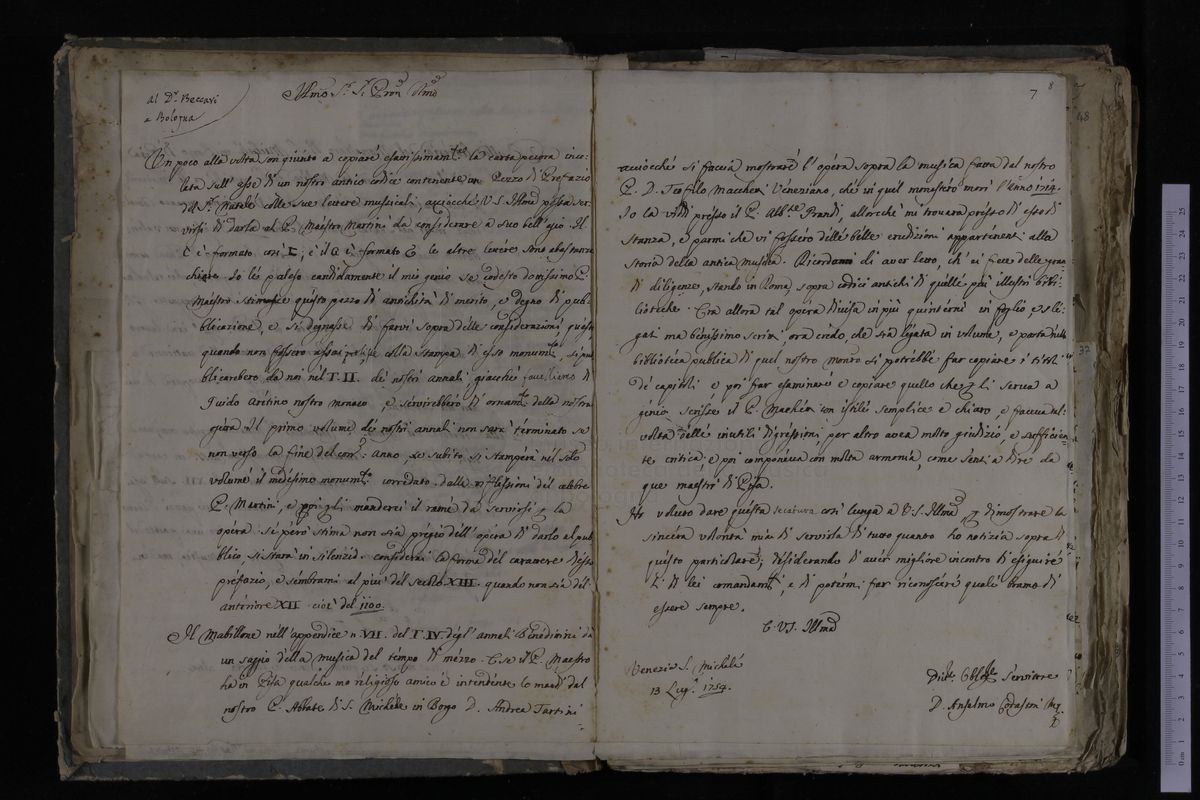 al Dr. Beccari
a Bologna
Illmo Sr. Sr. Pron
Un poco alla volta son giunto a copiare esattissimamte la carta pecora inco-
lata sull' asse di un nostri antico codice contenente un Pezzo di Prefazio
del Sr. Natale colle sue lettere musicali, acciocchè V. S. Illma possa ser-
virsi di darla al P. Maestro Martini da considerare a suo bell' agio. Il
C è formato così
chiare. Io le paleso candidamente il mio genio se codesto dottissimo P.
Maestro stimasse questo pezzo di antichità di merito, e degno di pub-
blicazione, e si degnasse di farvi sopra delle considerazioni, queste
quando non fossero assai colla stampa di esso monumto, si pub
blicarebero da noi nel T. II. de' nostri annali, giacchè favelliamo di
Guido Aretino nostro monaco, e servirebbero di ornamto della nostra
opera. Il primo volume de nostri annali non sarà terminato se
non verso la fine del corr. anno, se subito si stamperà nel
volume il medesimo monumto corredato dalle riflessioni del celebre
P. Martini, e poi gli manderei il rame da servirsi p la
opera. se però stima non sia pregio dell' opera di darlo al pub
blico, si starà in silenzio. considerai la forma del carattere di esso
prefazio, e sembrami al più del secolo XIII. quando non sia del-
anteriore XII cioè del 1100.
Il Mabillone nell' appendice n. VII. del T. IV. degl' annali Benedittini dà
un saggio della musica del tempo di mezzo. E se il P. Maestro
ha in Pisa qualche religioso amico e intendente lo mandi dal
nostro P. Abbate di S. Michele in Borgo D. Andrea Tartini
7 8
acciocchè si faccia mostrare l' opera sopra la musica fatta dal nostro
P. D. Teofilo Macchetti Veneziano, che in quel monastero morì l' anno 1714.
Io la vidi presso il P. Abbte Grandi, allorchè mi trovava presso di esso di
stanza, e parmi che vi fossero delle belle erudizioni appartenenti alla
storia della antica musica. Ricordami di aver letto, ch' ei fece delle gran
di diligenze, stando in Roma, sopra codici antichi di quelle più illustri bib-
liotteche. Era allora tal opera divisa in più quinterni in foglio e sle-
gati ma benissimo scritti, ora credo, che sia legata in volume, e posta nella
biblioteca publica di quel nostro monro si potrebbe far copiare i titoli
de' capitoli e poi far esaminare e copiare quello che gli serva a
genio scrisse il P. Macheti con istile semplice e chiaro, e faceva tal-
volta delle inutili digressioni, per altro avea molto giudizio, e sufficien-
te critica, e poi componeva con molta armonia, come sentii a dire da
que maestri di Pisa.
Ho voluto dare questa seccatura così lunga a V. S. Illma p dimostrare la
sincera volontà mia di servirla di tutto quanto ho notizia sopra di
questo particolare; desiderando di aver migliore incontro di eseguire
i di lei comandamti, e di potermi far riconoscere quale bramo di
essere sempre.
V. S. Illma
Venezia S. Michele
13 Lug. 1754.
Servitore
D. Anselmo Costadoni
48
37